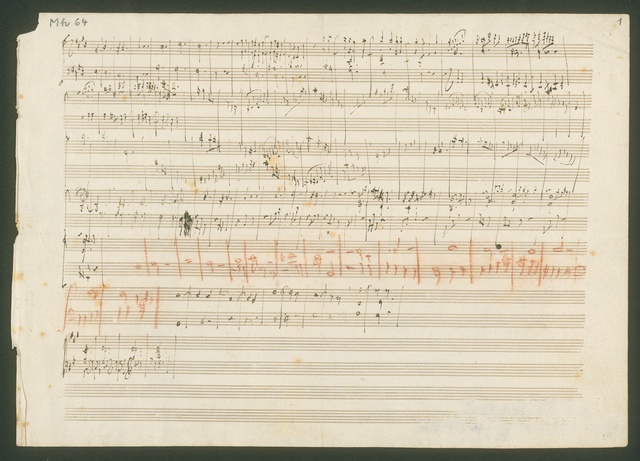 Mh 64
1